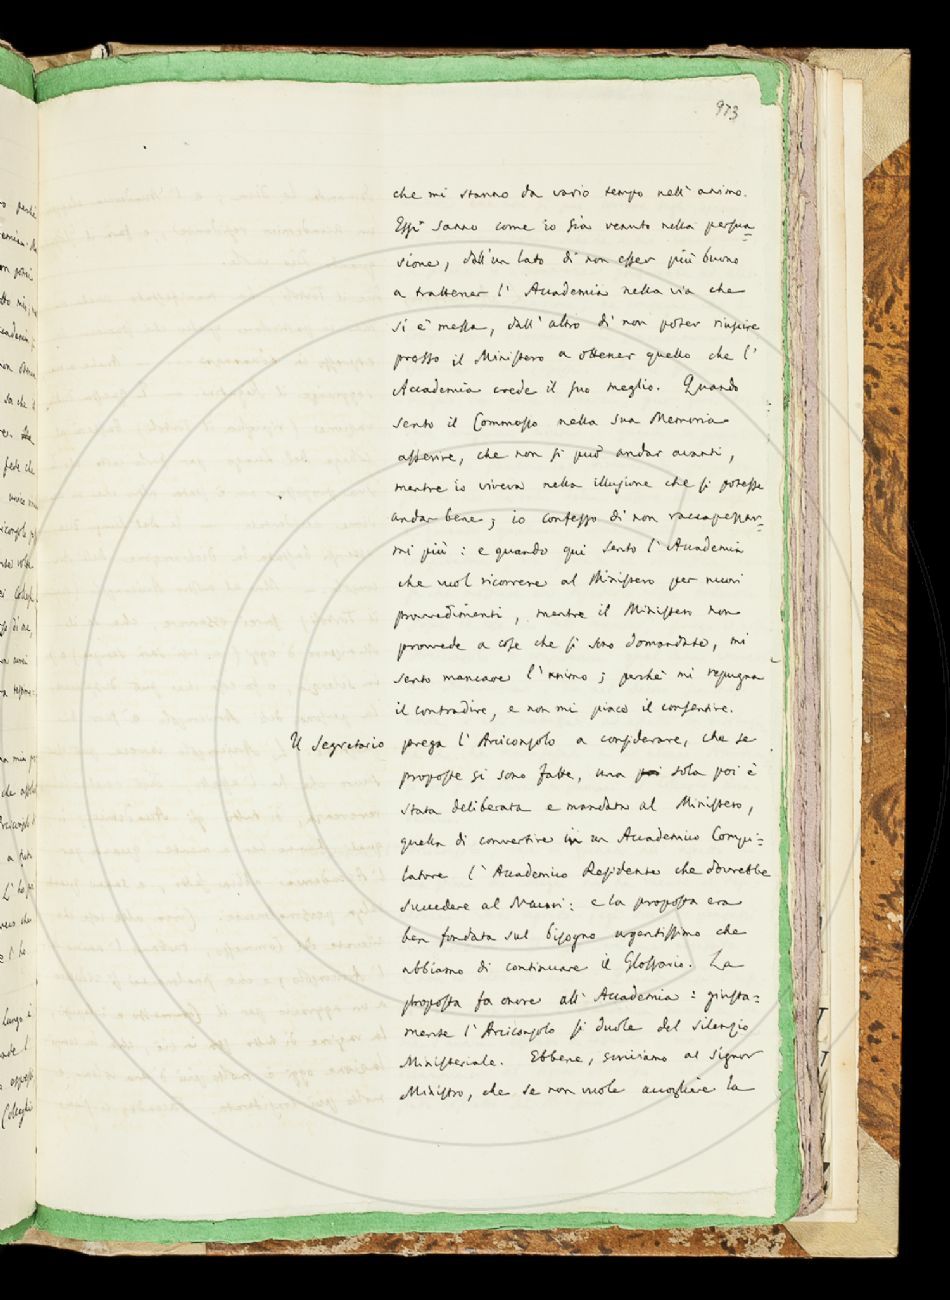 973
che mi stanno da vario tempo nell'animo.
Essi sanno come io sia venuto nella persua=
sione, dall'un lato di non esser più buono
a trattener l'Accademia nella via che
si è messa, dall'altro di non poter riuscire
presso il Ministero a ottener quello che l'
Accademia crede il suo meglio. Quando
sento il Commosso nella sua Memoria
asserire, che non si può andar avanti,
mentre io viveva nella illusione che si potesse
andar bene; io confesso di non raccapezzar=
mi più: e quando qui sento l'Accademia
che vuol ricorrere al Ministero per nuovi
provvedimenti, mentre il Ministero non
provvede a cose che si sono domandate, mi
sento mancare l'animo; perchè mi repugna
il contradire, e non mi piace il consentire.
Il Segretario prega l'Arciconsolo a considerare, che se
proposte si sono fatte, una poi sola poi è
stata deliberata e mandata al Ministero,
quella di convertire in un Accademico Compi=
latore l'Accademico Residente che dovrebbe
succedere al Nannucci: e la proposta era
ben fondata sul bisogno urgentissimo che
abbiamo di continuare il Glossario. La
proposta fa onore all'Accademia: giusta=
mente l'Arciconsolo si duole del silenzio
Ministeriale. Ebbene, scriviamo al Signor
Ministro, che se non vuole accogliere la